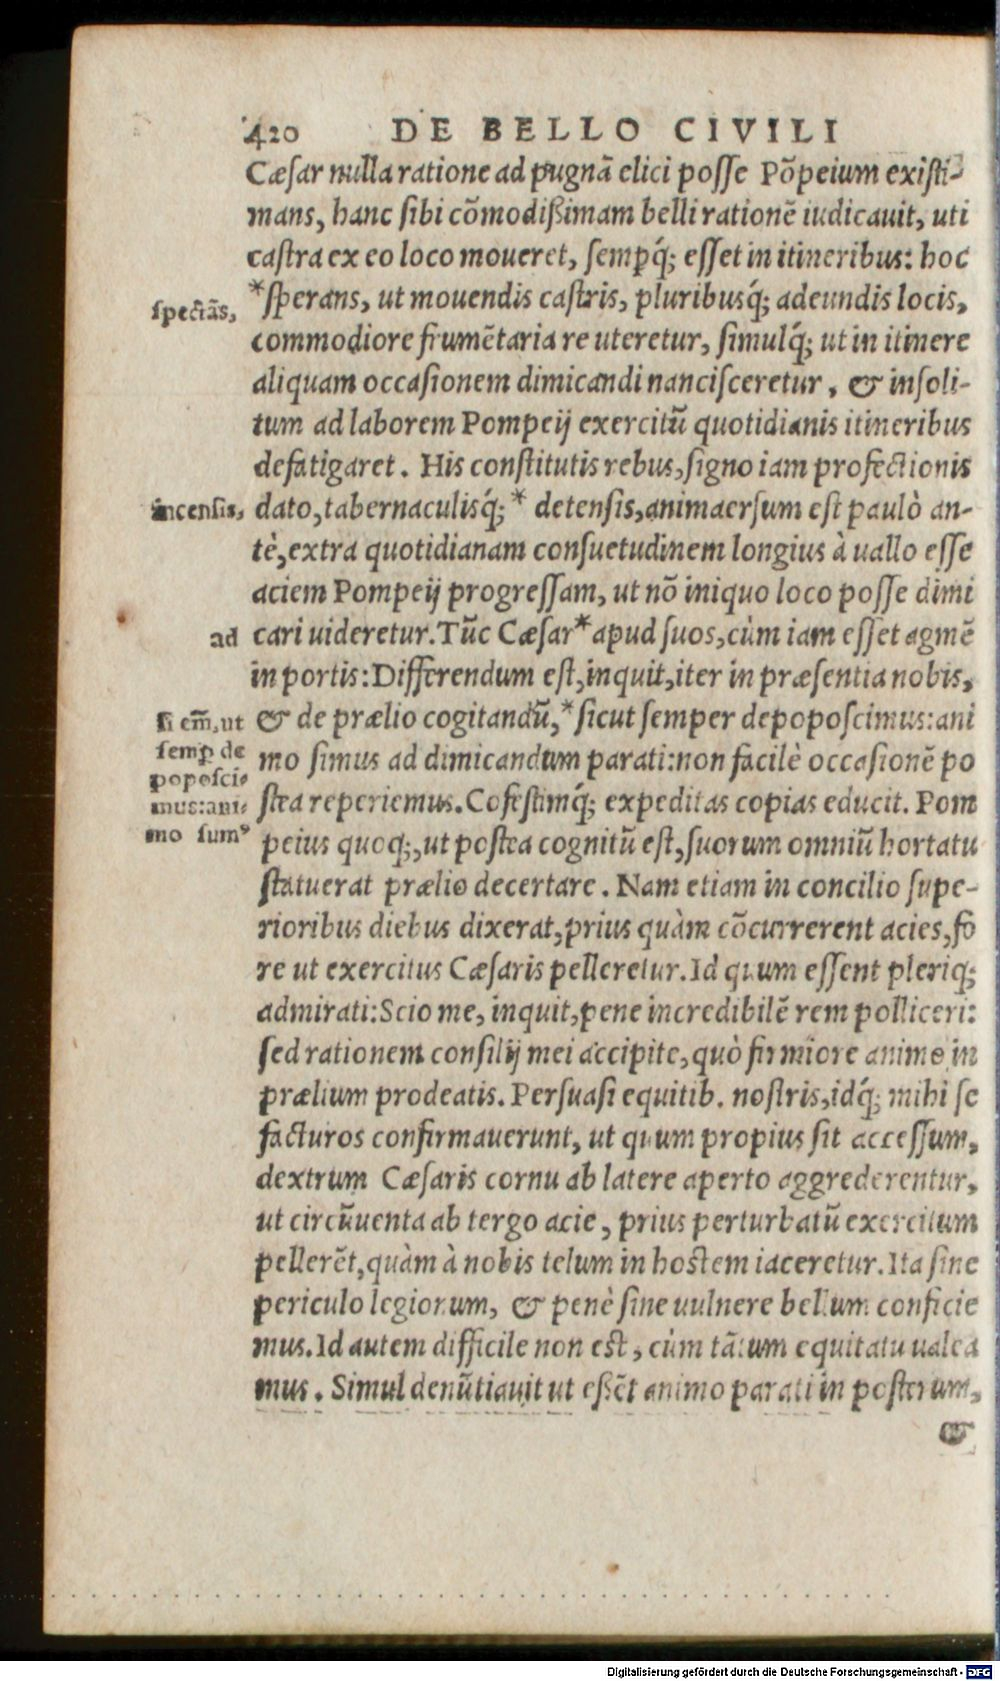 420 DE BELLO CIVILI
Cæſar nulla ratione ad pugnā elici poſſe Pōpeium exiſti-
mans, hanc ſibi cōmodiſſimam belli rationē iudicauit, uti
caſtra ex eo loco moueret, ſemperq́; eſſet in itineribus: hoc
ſpectās,
*ſperans, ut mouendis caſtris, pluribusq́; adeundis locis,
commodiore frumētaria re uteretur, ſimulq́; ut in itinere
aliquam occaſionem dimicandi nanciſceretur, & inſoli-
tum ad laborem Pompeij exercitū quotidianis itineribus
defatigaret. His conſtitutis rebus, ſigno iam profectionis
incenſis,
dato, tabernaculisq́; * detenſis, animaerſum eſt paulò an-
tè, extra quotidianam conſuetudinem longius à uallo eſſe
aciem Pompeij progreſſam, ut nō iniquo loco poſſe dimi
ad
cari uideretur. Tūc Cæſar * apud ſuos, cùm iam eſſet agmē
in portis: Differendum eſt, inquit, iter in præſentia nobis,
ſi em̄, ut
ſemp̱ de
popoſci-
mus: ani-
mo ſumꝰ
& de prælio cogitandū, * ſicut ſemper depopoſcimus: ani
mo ſimus ad dimicandum parati: non facilè occaſionē po
ſtea reperiemus. Cōfeſtimq́; expeditas copias educit. Pom
peius quoq;, ut poſtea cognitū eſt, ſuorum omniū hortatu
ſtatuerat prælio decertare. Nam etiam in concilio ſupe-
rioribus diebus dixerat, prius quàm cōcurrerent acies, fo
re ut exercitus Cæſaris pelleretur. Id quum eſſent pleriq;
admirati: Scio me, inquit, pene incredibilē rem polliceri:
ſed rationem conſilij mei accipite, quò firmiore animo in
prælium prodeatis. Perſuaſi equitib. noſtris, idq́; mihi ſe
facturos confirmauerunt, ut quum propius ſit acceſſum,
dextrum Cæſaris cornu ab latere aperto aggrederentur,
ut circūuenta ab tergo acie, prius perturbatū exercitum
pellerēt, quàm à nobis telum in hoſtem iaceretur. Ita ſine
periculo legionum, & penè ſine uulnere bellum conficie
mus. Id autem difficile non eſt, cùm tātum equitatu ualea
mus. Simul denūtiauit ut eſſēt animo parati in poſterum,
&
Digitalisierung gefördert durch die Deutsche Forschungsgemeinschaft - DFG